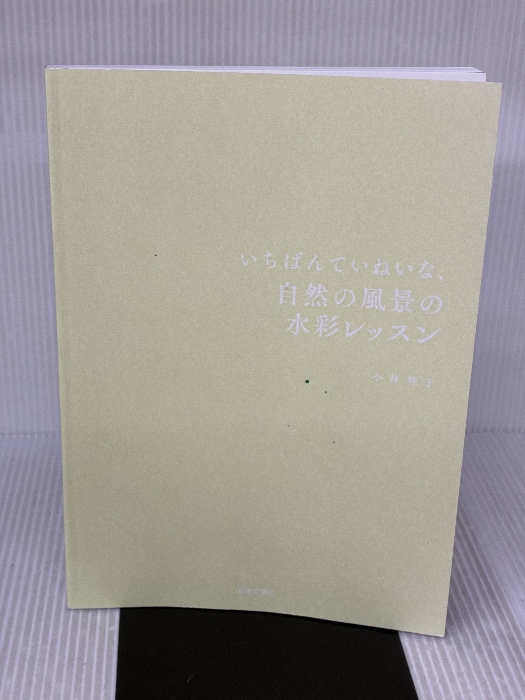 いちばんていねいな、
自然の風景の
水彩レッスン
小林